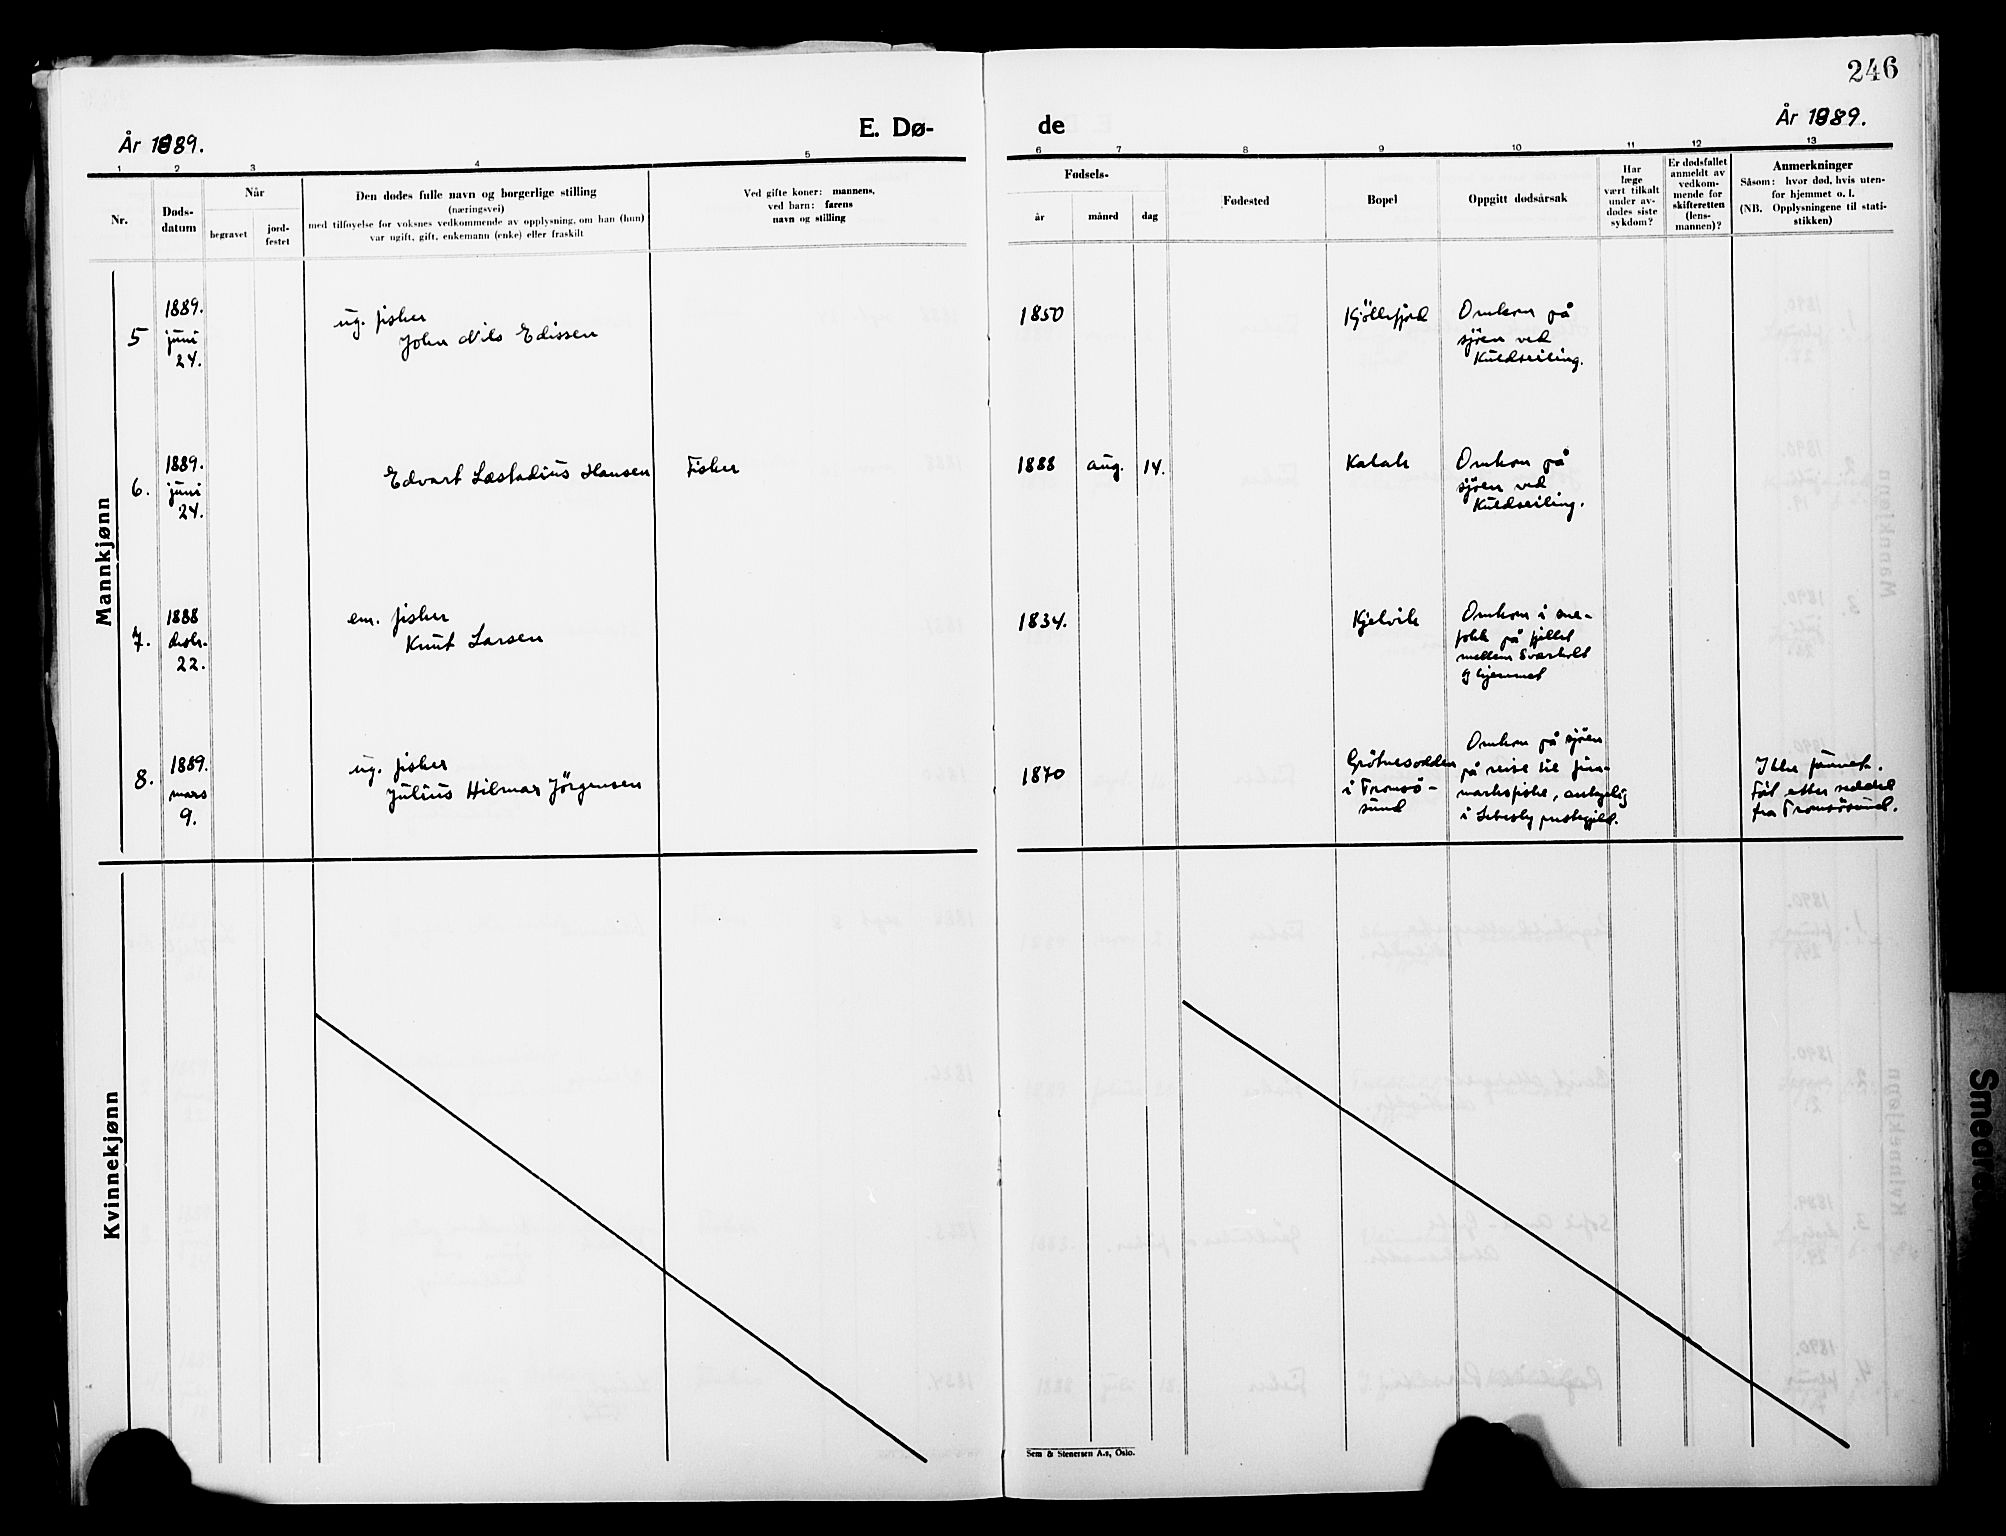 246
År 1889.
E. Dø-
de
År 1889.
1 2 3 4 5 6 7 8 9 10 11 12 13
Nr.
Døds-
datum
Når
begravet
jord-
festet
Den dødes fulle navn og borgerlige stilling
(næringsvei)
med tilføyelse for voksnes vedkommende av opplysning, om han (hun)
var ugift, gift, enkemann (enke) eller fraskilt
Ved gifte koner: mannens,
ved barn: farens
navn og stilling
Fødsels-
år
måned
dag
Fødested
Bopel
Oppgitt dødsårsak
Har
læge
vært tilkalt
under av-
dødes siste
sykdom?
Er dødsfallet
anmeldt av
vedkom-
mende for
skifteretten
(lens-
mannen)?
Anmerkninger
Såsom: hvor død, hvis uten-
for hjemmet o. l.
(NB. Opplysningene til stati-
stikken)
Mannkjønn
5
1889.
juni
24.
ug. fisker
John Nils Edissen
1850
Kjöllefjord
Omkom på
sjöen ved
Kuldseiling.
6.
1889.
juni
24.
Edvart Læstadius Hansen
Fisker
1888 aug. 14.
Kalak
Omkom på
sjöen ved
Kuldseiling.
7.
1888
desbr.
22.
em. fisker
Knut Larsen
1834.
Kjelvik
Omkom i sne-
fokk på fjellet
mellem Sværholt
og hjemmet
8.
1889.
mars
9.
ug. fisker
Julius Hilmar Jörgensen
1870
Grötnesodden
i Tromsö-
sund
Omkom på sjöen
på reise til Finn-
marksfiske, antagelig
i Lebesby prestegjeld.
Ikke funnet.
Fört efter seddel
fra Tromsösund.
Kvinnekjønn
Sem & Stenersen A.s, Oslo.